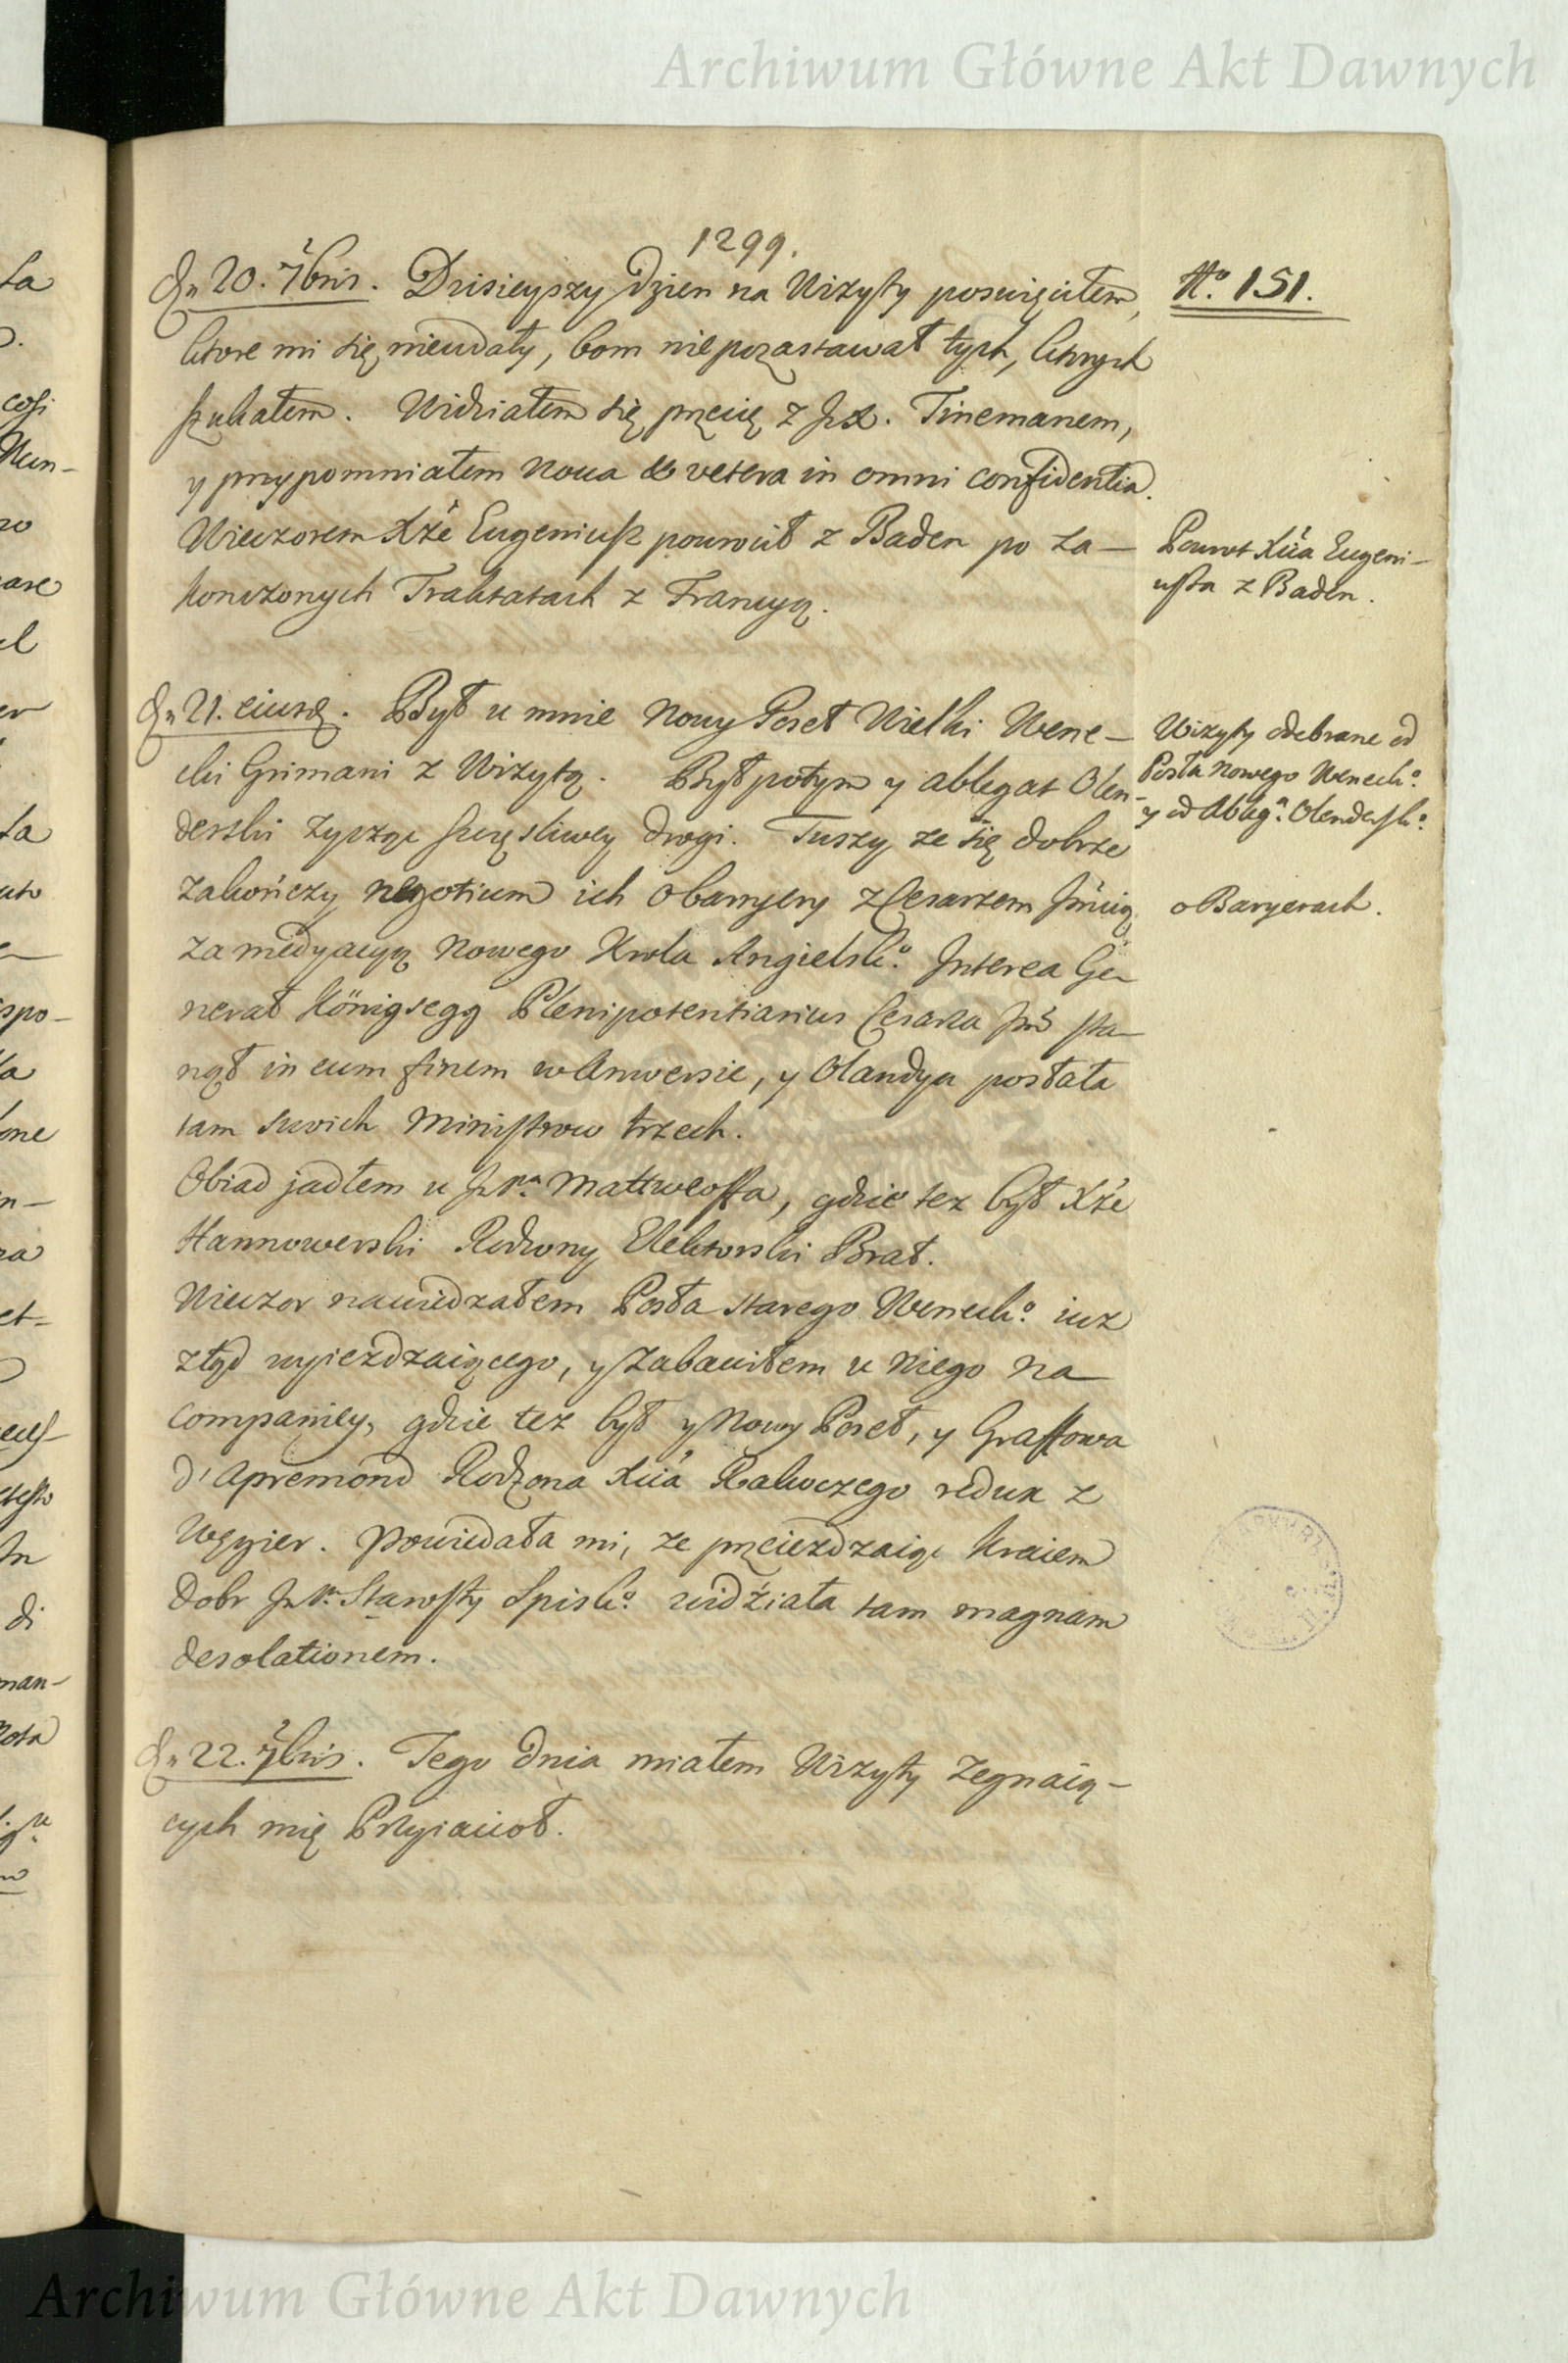 Archiwum Główne Akt Dawnych
1299.
Dn 20. 7bris. Dzisieyszy dzien na Wizyty poswięciłem,
ktore mi się nieudały, bom niepozastawał tych, ktorych
szukałem. Widziałem się przecię z JP. Tinemanem,
y przypomniałem nova & vetera in omni confidentia.
Wieczorem Xże Eugeniusz powrócił z Baden po za-
konczonych Traktatach z Francyą.
Dn 21. eiusd. Był u mnie Nowy Poseł Wielki Wene-
cki Grimani z Wizytą. Był potym y ablegat Olen-
derski zycząc szczęsliwey drogi. Tuszy ze się dobrze
zakończy negotium ich o barryery z Cesarzem Jmcią
za medyacyą Nowego Krola Angielsko. Interea Ge-
nerał Königsegg Plenipotentiarius Cesarza Jmć sta-
nął in eum finem w Anwersie, y Olandya posłała
tam swoich Ministrow trzech.
Obiad jadłem u JPa. Mattweoffa, gdzie tez był Xże
Hannowerski Rodzony Elektorski Brat.
Wieczor nawiedzałem Posła starego Wenecko. iuz
ztąd wyiezdzaiącego, y zabawiłem u niego na
companiey, gdzie tez był y Nowy Poseł, y Graffowa
d'Apremond Rodzona Xcia Rakoczego redux z
Węgier. Powiedała mi, ze przeiezdzaiąc kraiem
Dobr JPa. Starosty Spisko. widziała tam magnam
desolationem.
Dn 22. 7bris. Tego dnia miałem Wizyty zegnaią-
cych mię Przyiacioł.
No. 151.
Powrot Xcia Eugeni-
usza z Baden.
Wizyty odebrane od
Posła Nowego Wenecko.
y od Ableg. Olendersko.
o Baryerach.
Archiwum Główne Akt Dawnych